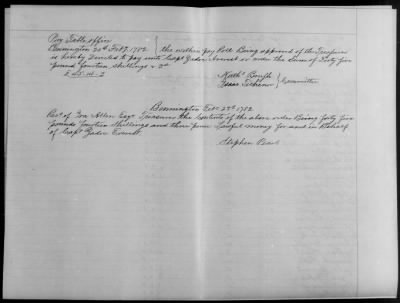 Pay Table office
Bennington 20th Feby. 1782 } the within pay Roll Being approved of the Treasurer
is hereby Directed to pay unto Capt Zador Everest or order the Sum of Forty five
pound fourteen shillings & 2d
£45.14.2
Nathl Brush
Isaac Tichenor } Committee
Bennington Feb. 27th 1782
Recd of Ira Allen Esqr Treasurer the Contents of the above order Being forty five
pounds fourteen Shillings and three pence Lawful money for and in Behalf
of Capt Zador Everest.
Stephen Pearl